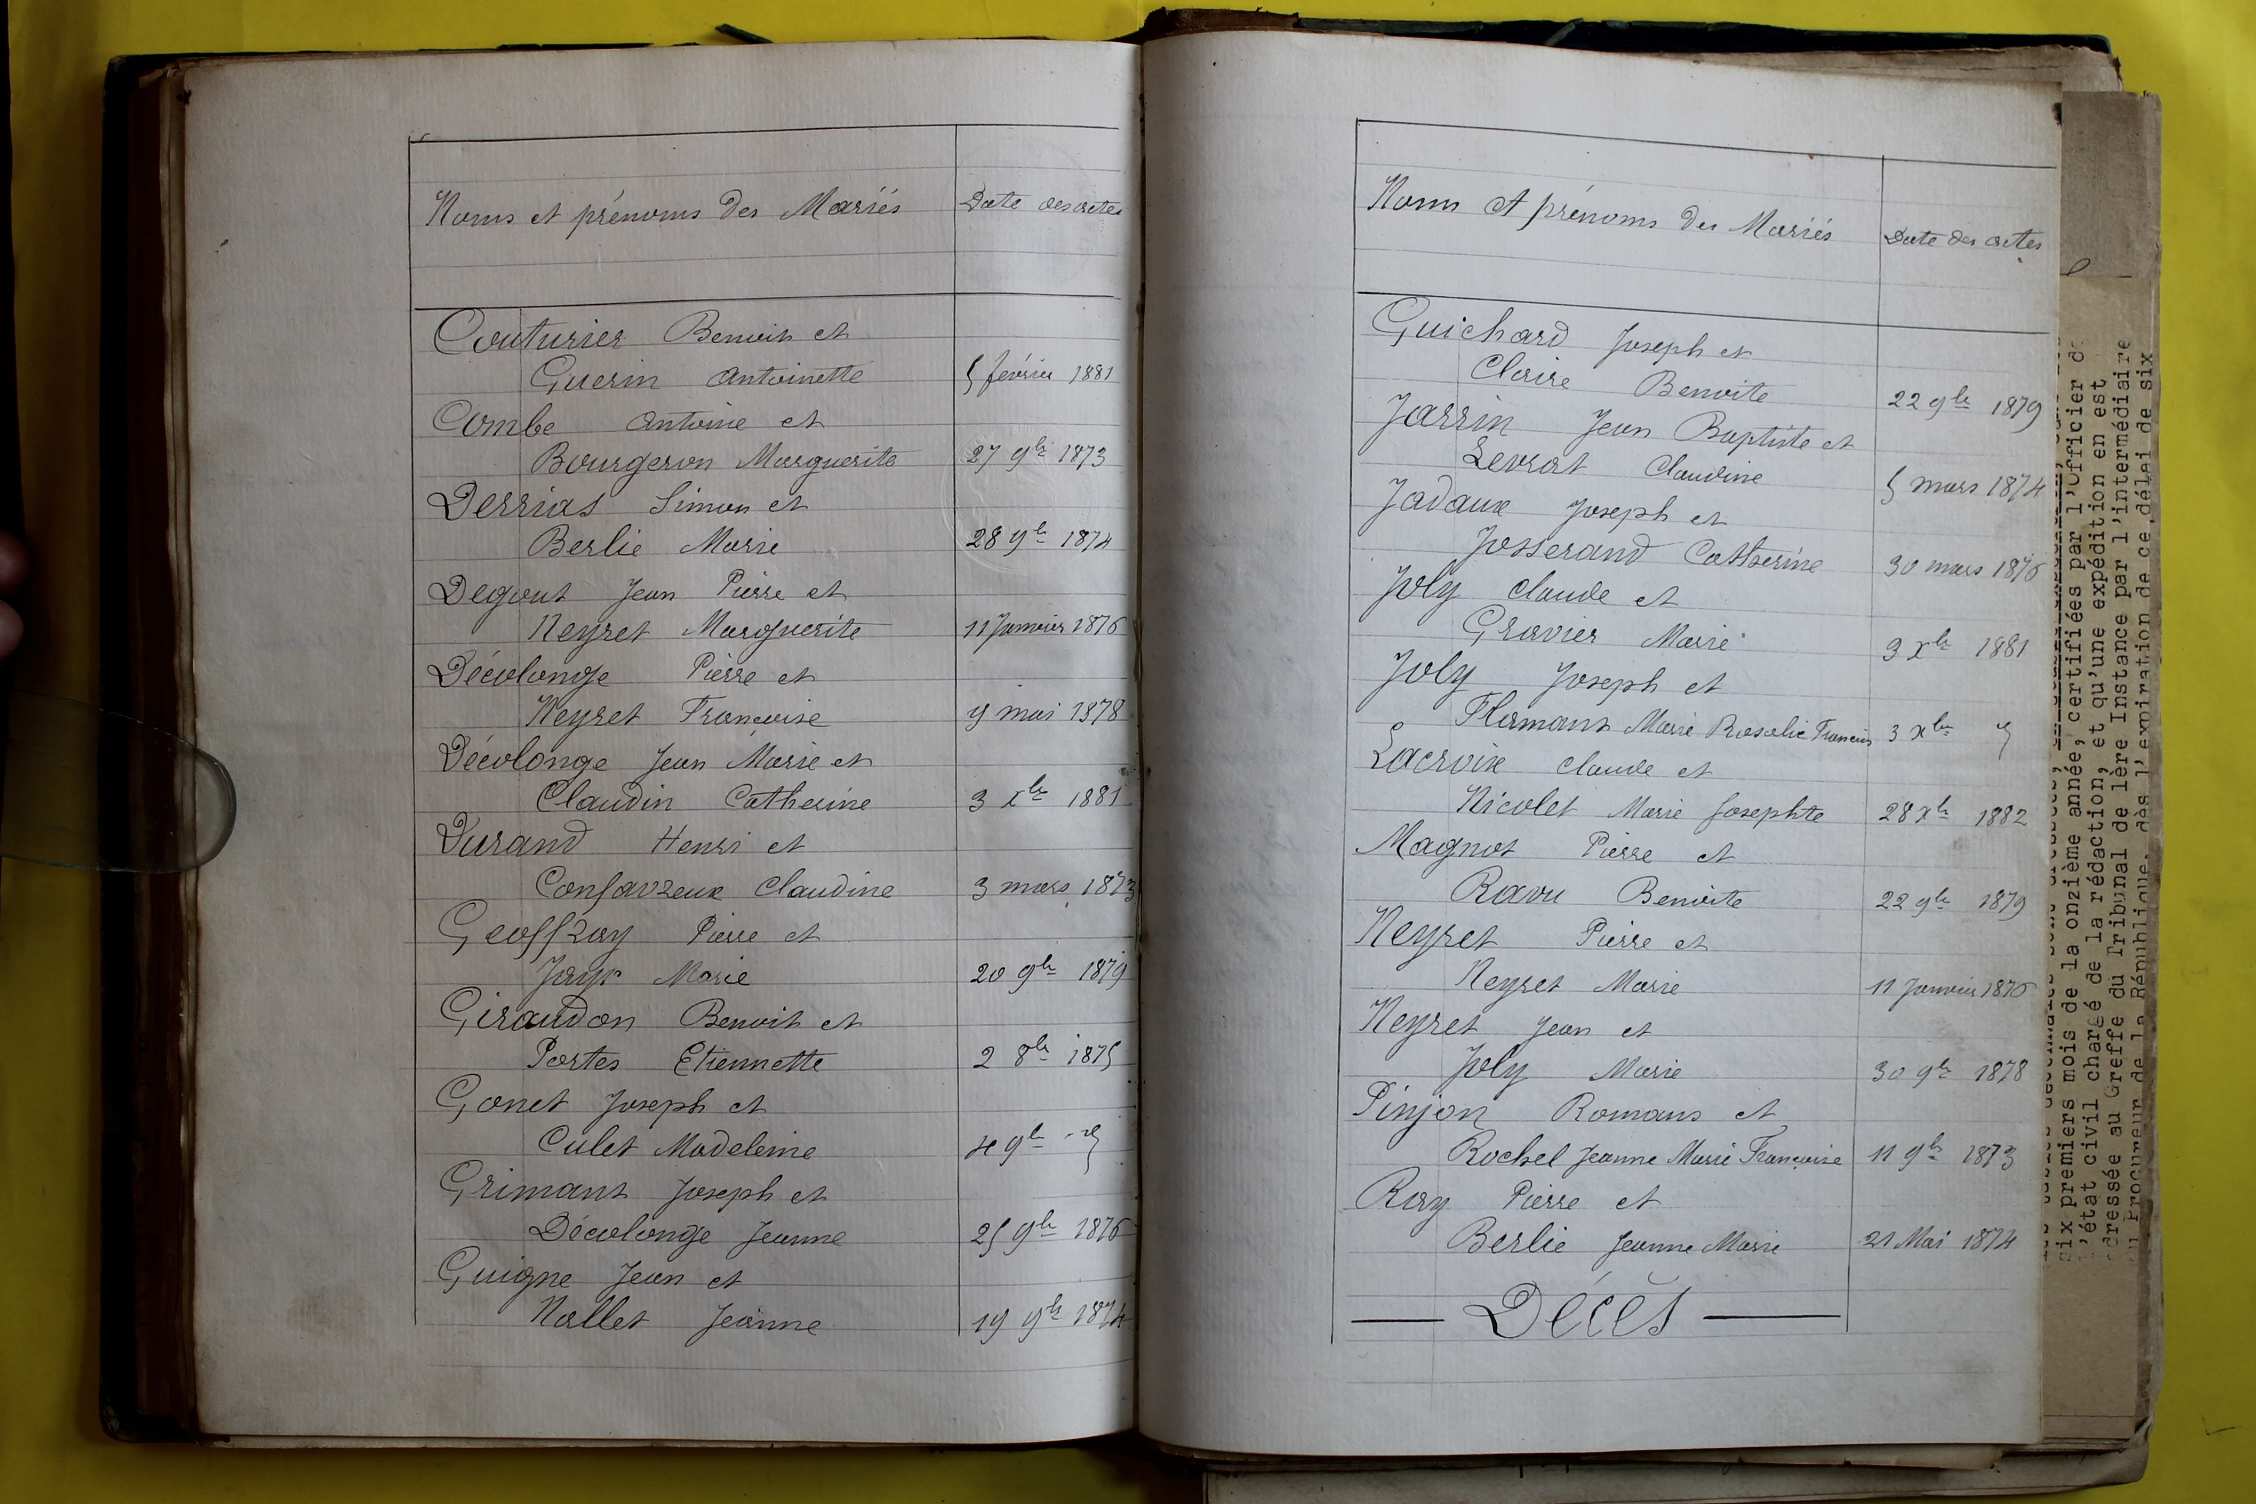 Noms et prénoms des Mariés
Date des actes
Couturier Benoit et
Guerin Antoinette 5 février 1881
Combe Antoine et
Bourgeron Marguerite 27 9bre 1873
Derrias Simon et
Berlie Marie 28 9bre 1874
Degout Jean Pierre et
Neyret Marguerite 11 Janvier 1876
Décolonge Pierre et
Neyret Françoise 9 mai 1878
Décolonge Jean Marie et
Claudin Catherine 3 xbre 1881
Durand Henri et
Confavreux Claudine 3 mars 1873
Geoffray Pierre et
Jayr Marie 20 9bre 1879
Giraudon Benoit et
Portes Etiennette 2 8bre 1875
Gonet Joseph et
Culet Madeleine 4 9bre
Grimant Joseph et
Décolonge Jeanne 25 9bre 1876
Guigne Jean et
Nallet Jeanne 19 9bre 1874
Noms et prénoms des Mariés
Date des actes
Guichard Joseph et
Claire Benoite 22 9bre 1879
Jarrin Jean Baptiste et
Levrat Claudine 5 mars 1874
Jadaux Joseph et
Josserand Catherine 30 mars 1876
Joly Claude et
Gravier Marie 3 xbre 1881
Joly Joseph et
Flamant Marie Rosalie 3 xbre
Lacroix Claude et
Nicolet Marie Josephte 28 xbre 1882
Magnot Pierre et
Ravu Benoite 22 9bre 1879
Neyret Pierre et
Neyret Marie 11 Janvier 1876
Neyret Jean et
Joly Marie 30 9bre 1878
Pinjon Romans et
Rochel Jeanne Marie Françoise 11 9bre 1873
Ray Pierre et
Berlie Jeanne Marie 21 Mai 1874
Décès
six premiers mois de la onzième année, certifiées par l'Officier de
l'état civil chargé de la rédaction, et qu'une expédition en est
adressée au Greffe du Tribunal de 1ère Instance par l'intermédiaire
du Procureur de la République, dès l'expiration de ce délai de six